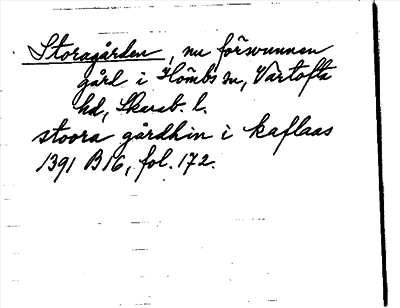 Storagården, nu försvunnen
gård i Hömbs sn, Vartofta
hd, Skarab. l.
stoora gårdhin i kaflaas
1391 B 16, fol. 172.